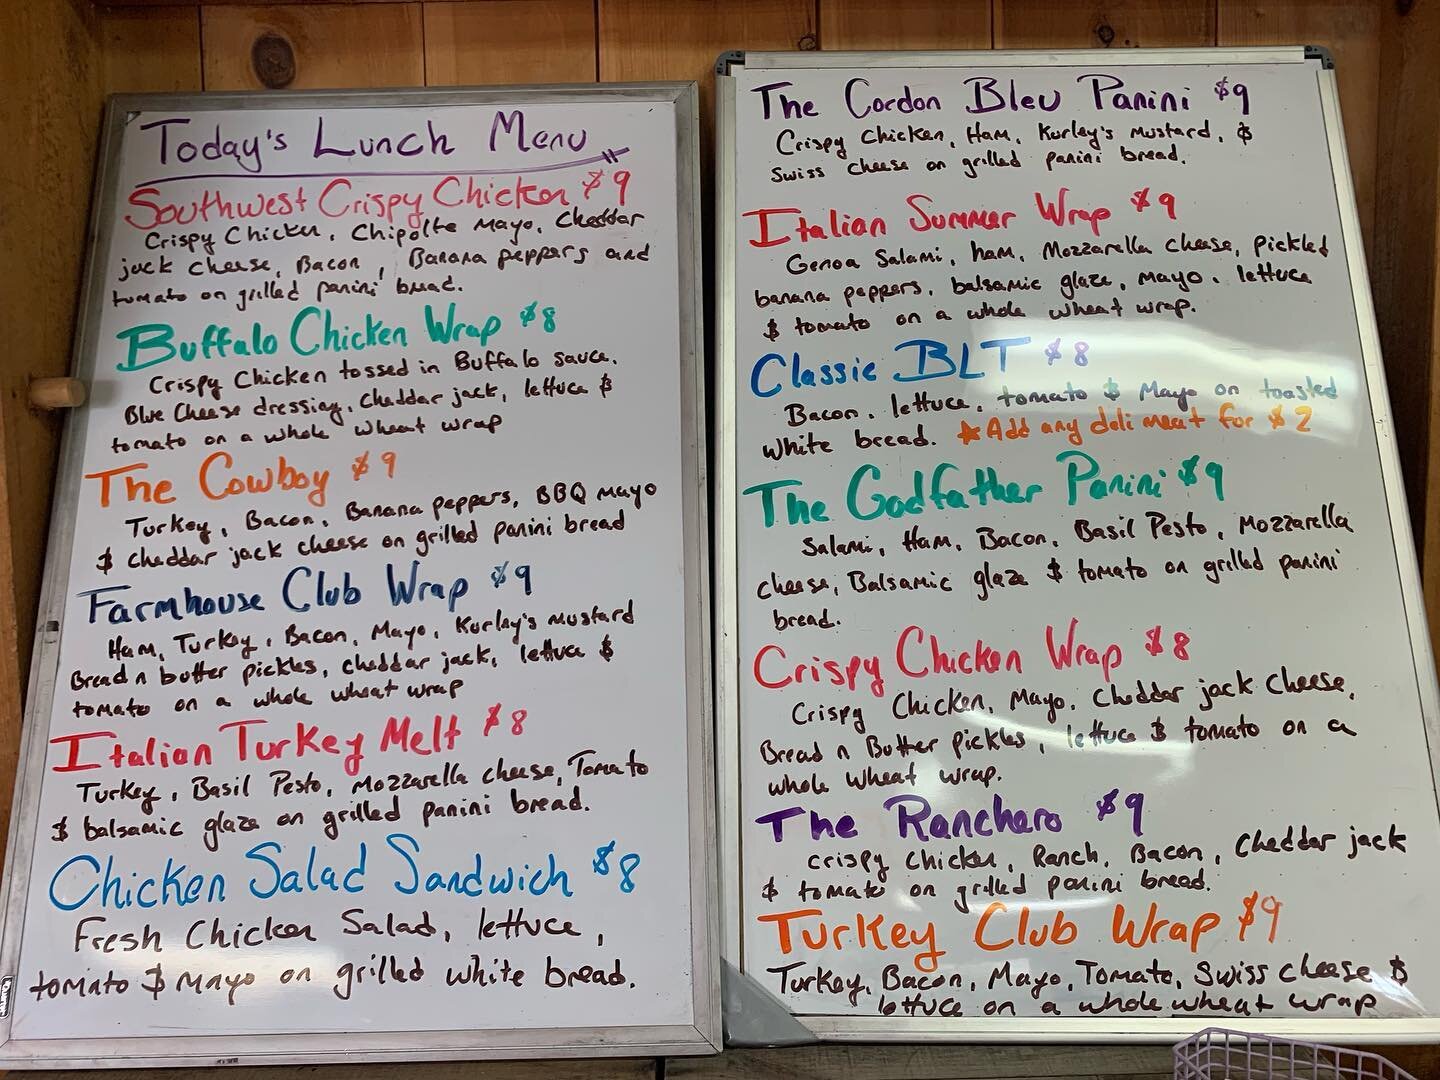 Today's Lunch Menu
Southwest Crispy Chicken $9
Crispy Chicken, Chipolte Mayo, Cheddar
jack cheese, Bacon, Banana peppers and
tomato on grilled panini bread.
Buffalo Chicken Wrap $8
Crispy Chicken tossed in Buffalo sauce.
Blue Cheese dressing, cheddar jack, lettuce &
tomato on a whole wheat wrap
The Cowboy $9
Turkey, Bacon, Banana peppers, BBQ mayo
& cheddar jack cheese on grilled panini bread
Farmhouse Club Wrap $9
Ham, Turkey, Bacon, Mayo, Kurley's mustard
Bread n butter pickles, cheddar jack, lettuce &
tomato on a whole wheat wrap
Italian Turkey Melt $8
Turkey, Basil Pesto, Mozzarella cheese, Tomato
& balsamic glaze on grilled panini bread.
Chicken Salad Sandwich $8
Fresh Chicken Salad, lettuce,
tomato & Mayo on grilled white bread.
The Cordon Bleu Panini $9
Crispy Chicken, Ham, Kurley's Mustard, &
Swiss cheese on grilled panini bread.
Italian Summer Wrap $9
Genoa Salami, ham, Mozzarella cheese, pickled
banana peppers, balsamic glaze, mayo, lettuce
& tomato on a whole wheat wrap.
Classic BLT $8
Bacon, lettuce, tomato & Mayo on toasted
white bread. ★Add any deli meat for $2
The Godfather Panini $9
Salami, Ham, Bacon, Basil Pesto, Mozzarella
cheese, Balsamic glaze & tomato on grilled panini
bread.
Crispy Chicken Wrap $8
Crispy Chicken, Mayo, Cheddar jack cheese,
Bread n Butter pickles, lettuce & tomato on a
whole wheat wrap.
The Ranchero $9
Crispy Chicken, Ranch, Bacon, Cheddar jack
& tomato on grilled panini bread.
Turkey Club Wrap $9
Turkey, Bacon, Mayo, Tomato, Swiss cheese &
lettuce on a whole wheat wrap